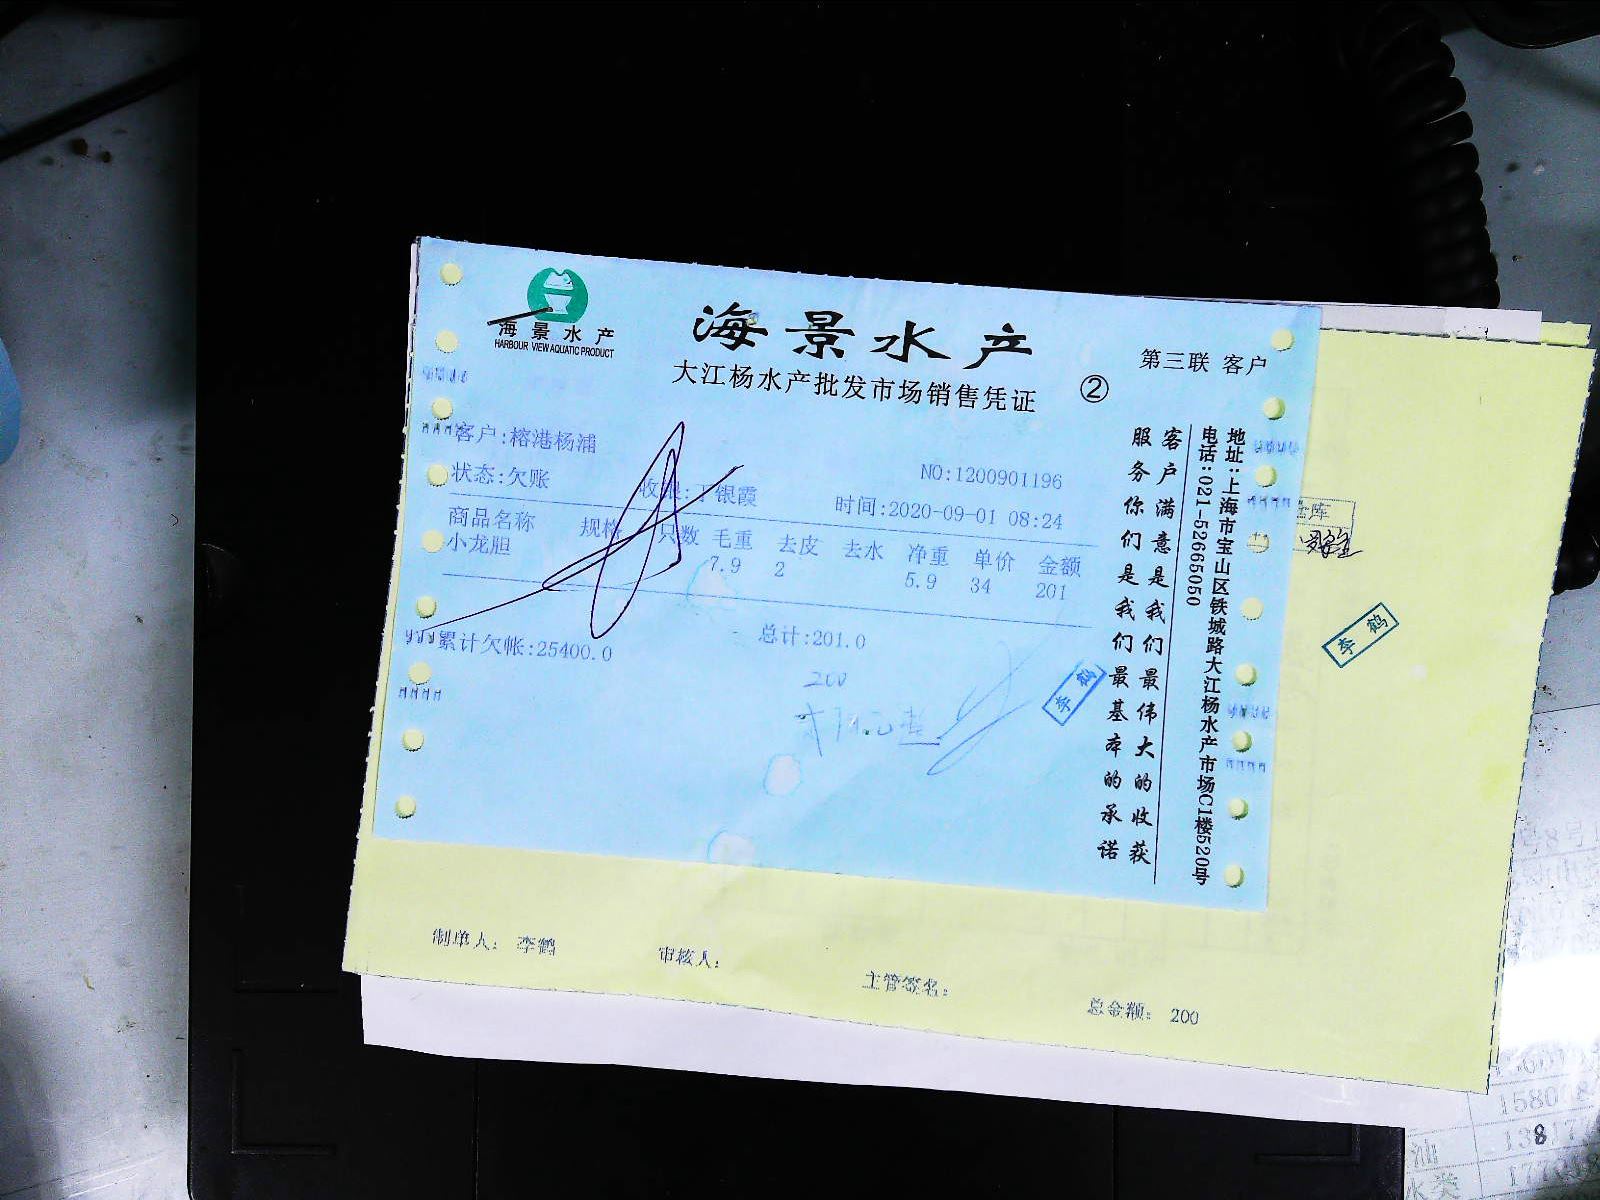 海景水产
HARBOUR VIEW AQUATIC PRODUCT
海景水产
大江杨水产批发市场销售凭证
②
第三联 客户
客户:榕港杨浦
状态:欠账
收银:丁银霞
NO:1200901196
时间:2020-09-01 08:24
商品名称 规格 只数 毛重 去皮 去水 净重 单价 金额
小龙胆 7.9 2 5.9 34 201
累计欠帐:25400.0
总计:201.0
200
李鹤
客户满意是我们最伟大的收获
服务你们是我们最基本的承诺
地址:上海市宝山区铁城路大江杨水产市场C1楼520号
电话:021-52665050
李鹤
制单人: 李鹤
审核人:
主管签名:
总金额: 200